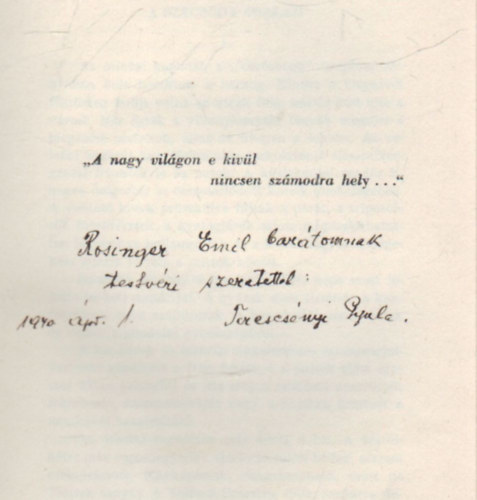 „A nagy világon e kivül
nincsen számodra hely . . .“
Rosinger Emil barátomnak
testvéri szeretettel :
1940 ápr. 1. Terescsényi Gyula.